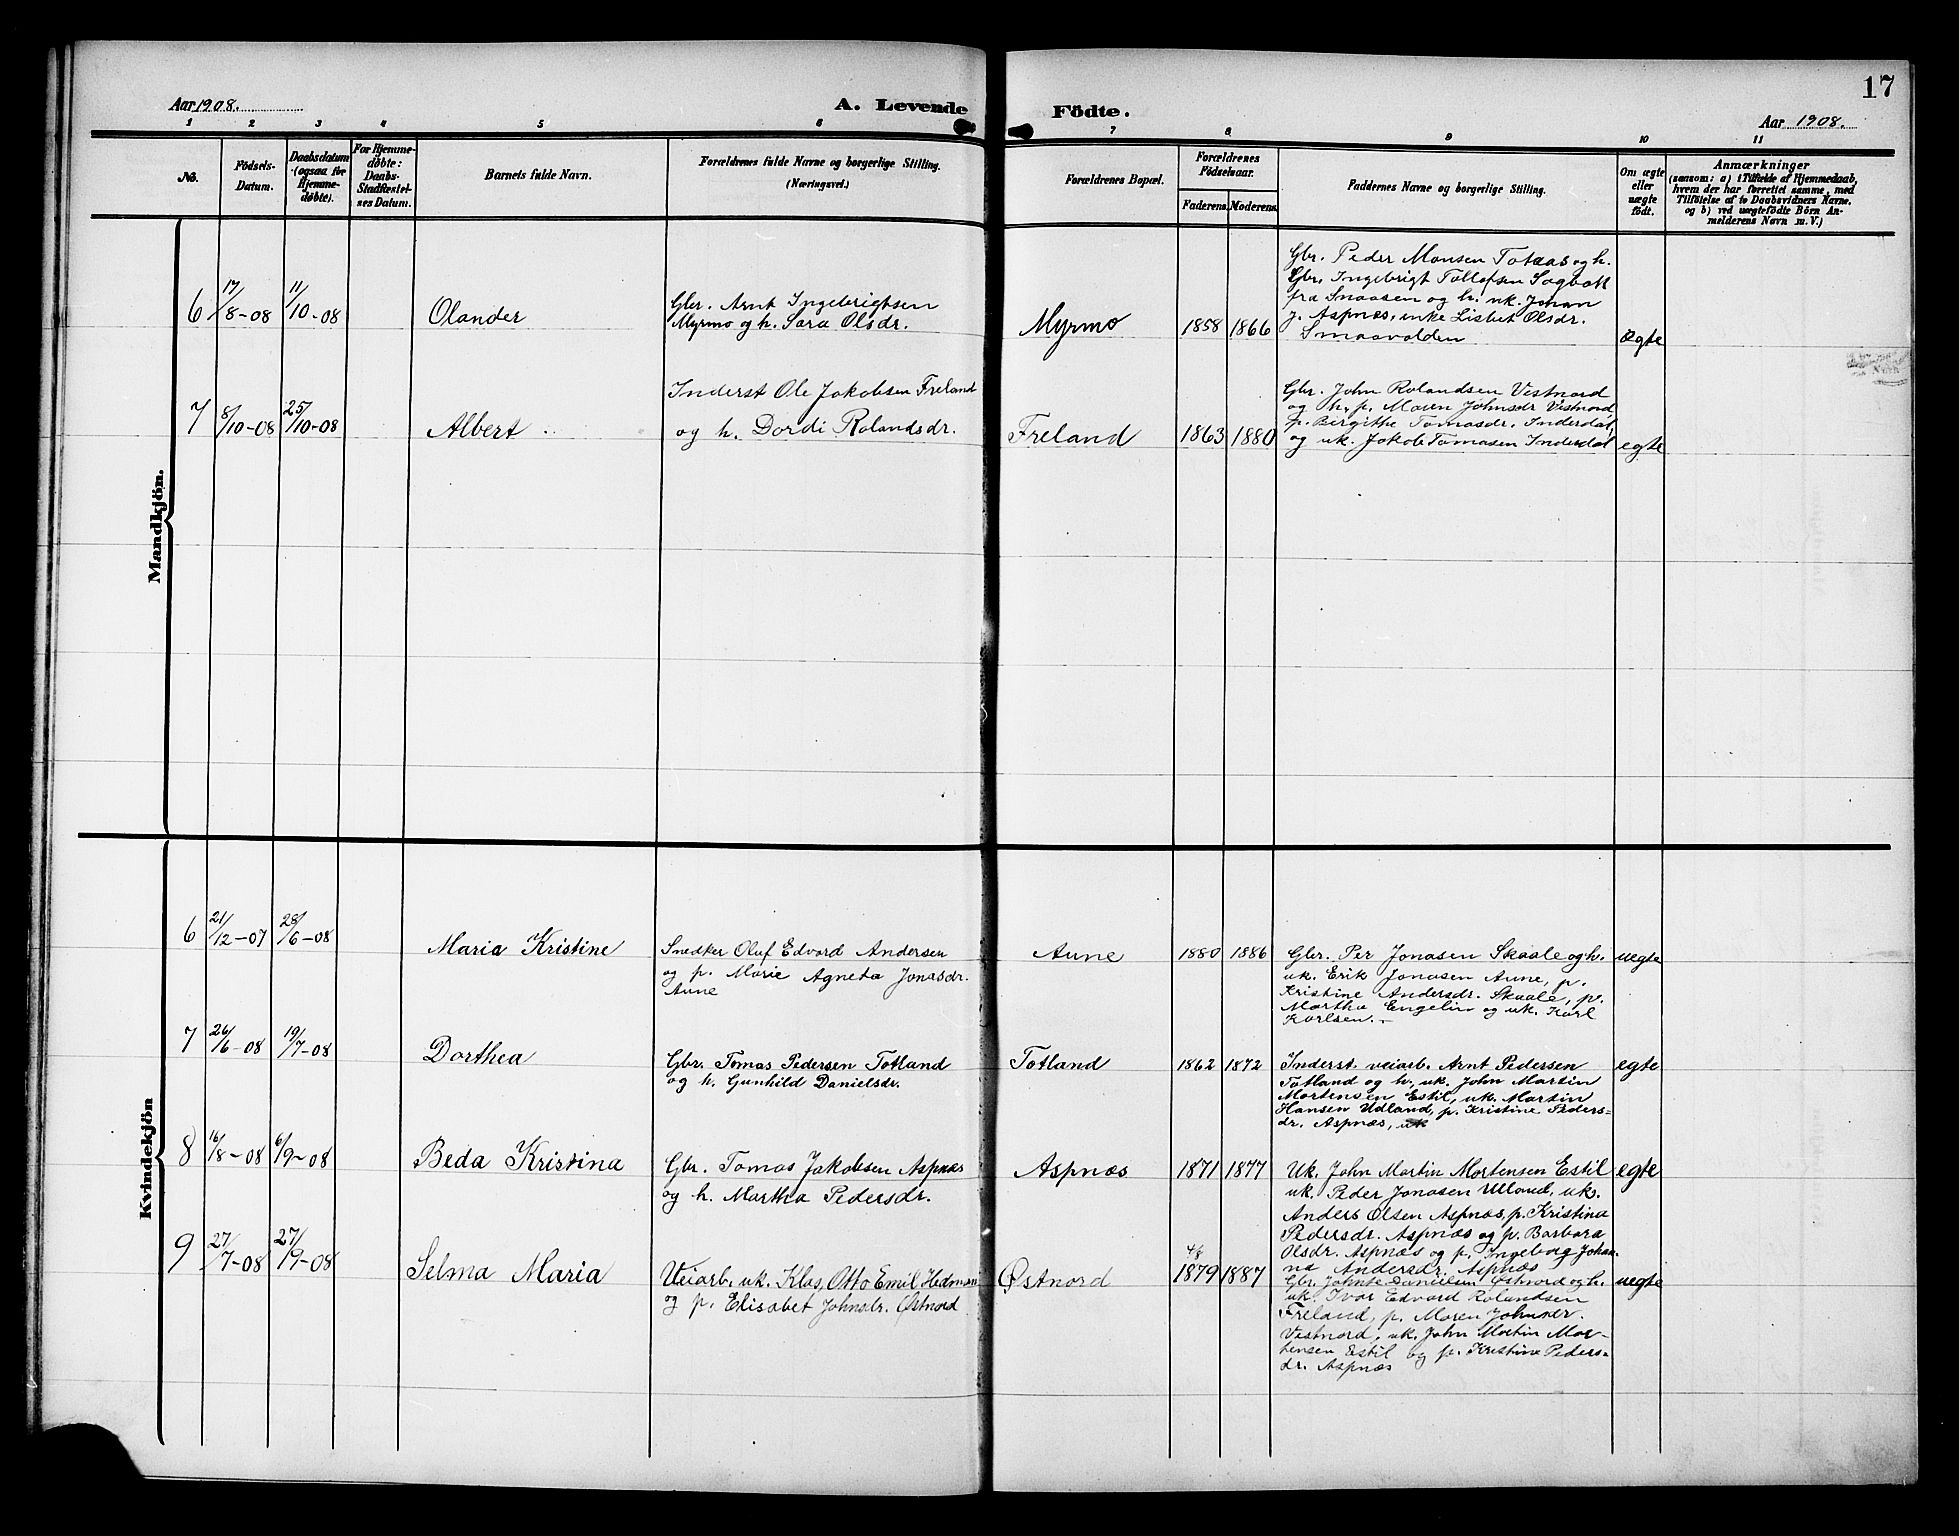 17
Aar 1908.
A. Levende Födte.
Aar 1908.
1 2 3 4 5 6 7 8 9 10 11
No.
Födsels-
Datum.
Daabsdatum
(ogsaa for
Hjemme-
døbte).
For Hjemme-
døbte:
Daabs-
Stadfæstel-
ses Datum.
Barnets fulde Navn.
Forældrenes fulde Navne og borgerlige Stilling.
(Næringsvei.)
Forældrenes Bopæl.
Forældrenes
Födselsaar.
Faderens.
Moderens.
Faddernes Navne og borgerlige Stilling.
Om ægte
eller
uægte
födt.
Anmærkninger
(saasom: a) i Tilfælde af Hjemmedaab,
hvem der har forrettet samme, med
Tilföielse af to Daabsvidners Navne,
og b) ved uægtefödte Börn An-
melderens Navn m. V.)
Mandkjön.
6
17/8-08
11/10-08
Olander
Gbr. Arnt Ingebrigtsen
Myrmo og h. Sara Olsdr.
Myrmo
1858
1866
Gbr. Peder Monsen Totaas og h.
Gbr. Ingebrigt Tollefsen Sagbak
fra Snaasen og h. uk. Johan
J. Aspnæs, enke Lisbet Olsdr.
Smaavolden
Ægte
7
8/10-08
25/10-08
Albert
Inderst Ole Jakobsen Freland
og h. Dordi Rolandsdr.
Freland
1863
1880
Gbr. John Rolandsen Vestnord
og h. p. Maren Johnsdr Vestnord,
p. Birgithe Tomasdr. Inderdal,
og uk. Jakob Tomasen Inderdal
egte
Kvindekjön
6
21/12-07
28/6-08
Maria Kristine
Snedker Oluf Edvard Andersen
og p. Marie Agneta Jonasdr.
Aune
Aune
1880
1886
Gbr. Per Jonasen Skaale og h.
uk. Erik Jonasen Aune, p.
Kristine Andersdr. Skaale, p.
Martha Engelin og uk. Karl
Karlsen.-
uegte
7
26/6-08
19/7-08
Dorthea
Gbr. Tomas Pedersen Totland
og h. Gunhild Danielsdr.
Totland
1862
1872
Inderst. veiarb. Arnt Pedersen
Totland og h., uk. John Martin
Mortensen Estil, uk. Martin
Hansen Udland, p. Kristine Peders-
dr. Aspnæs, uk
egte
8
16/8-08
6/9-08
Beda Kristina
Gbr. Tomas Jakobsen Aspnæs
og h. Martha Pedersdr.
Aspnæs
1871
1877
Uk. John Martin Mortensen Estil
uk. Peder Jonasen Ulland, uks.
Anders Olsen Aspnæs, p. Kristina
Pedersdr. Aspnæs og p. Barbara
Olsdr. Aspnæs og p. Ingeborg Johan-
na Andersdr. Aspnæs
egte
9
27/7-08
27/9-08
Selma Maria
Veiarb. uk. Klas, Otto Emil Hedman
og p. Elisabet Johnsdr. Østnord
Østnord
4/8
1879
1887
Gbr. Johnt Danielsen Østnord og h.
uk. Ivar Edvard Rolandsen
Freland, p. Maren Johnsdr.
Vestnord, uk. John Martin Mor-
tensen Estil og p. Kristine Peders-
dr. Aspnæs
uegte